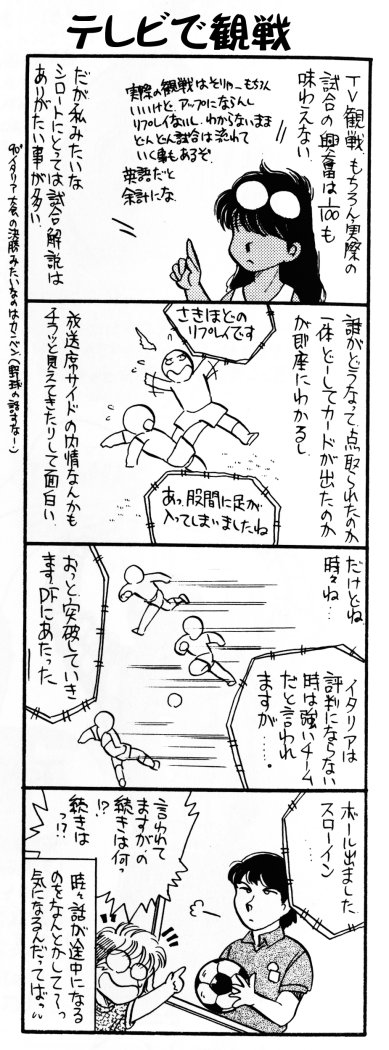 テレビで観戦
TV観戦 もちろん実際の
試合の興奮は1/100も
味わえない
実際の観戦はそりゃーもちろん
いいけど、アップにならんし
リプレイないし、わからないまま
どんどん試合は流れて
いく事もあるぞ
英語だと
余計にな
だが私みたいな
シロートにとっては試合解説は
ありがたい事が多い
90'イタリア大会の決勝みたいなのはカンベン(野球の話すなー)
誰がどうなって点取られたのか
一体どーしてカードが出たのか
が即座にわかるし
さきほどの
リプレイです
あっ、股間に足が
入ってしまいましたね
放送席サイドの内情なんかも
チラッと見えてきたりして面白い
だけどね
時々ね…
イタリアは
評判にならない
時は強いチーム
だと言われ
ますが……
おっと突破していき
ます DFにあたった
ボール出ました
スローイン
言われて
ますが、の
続きは何っ
!?
続きは
っ!?
時々話が途中になる
のをなんとかして〜っ
気になるんだってばっ